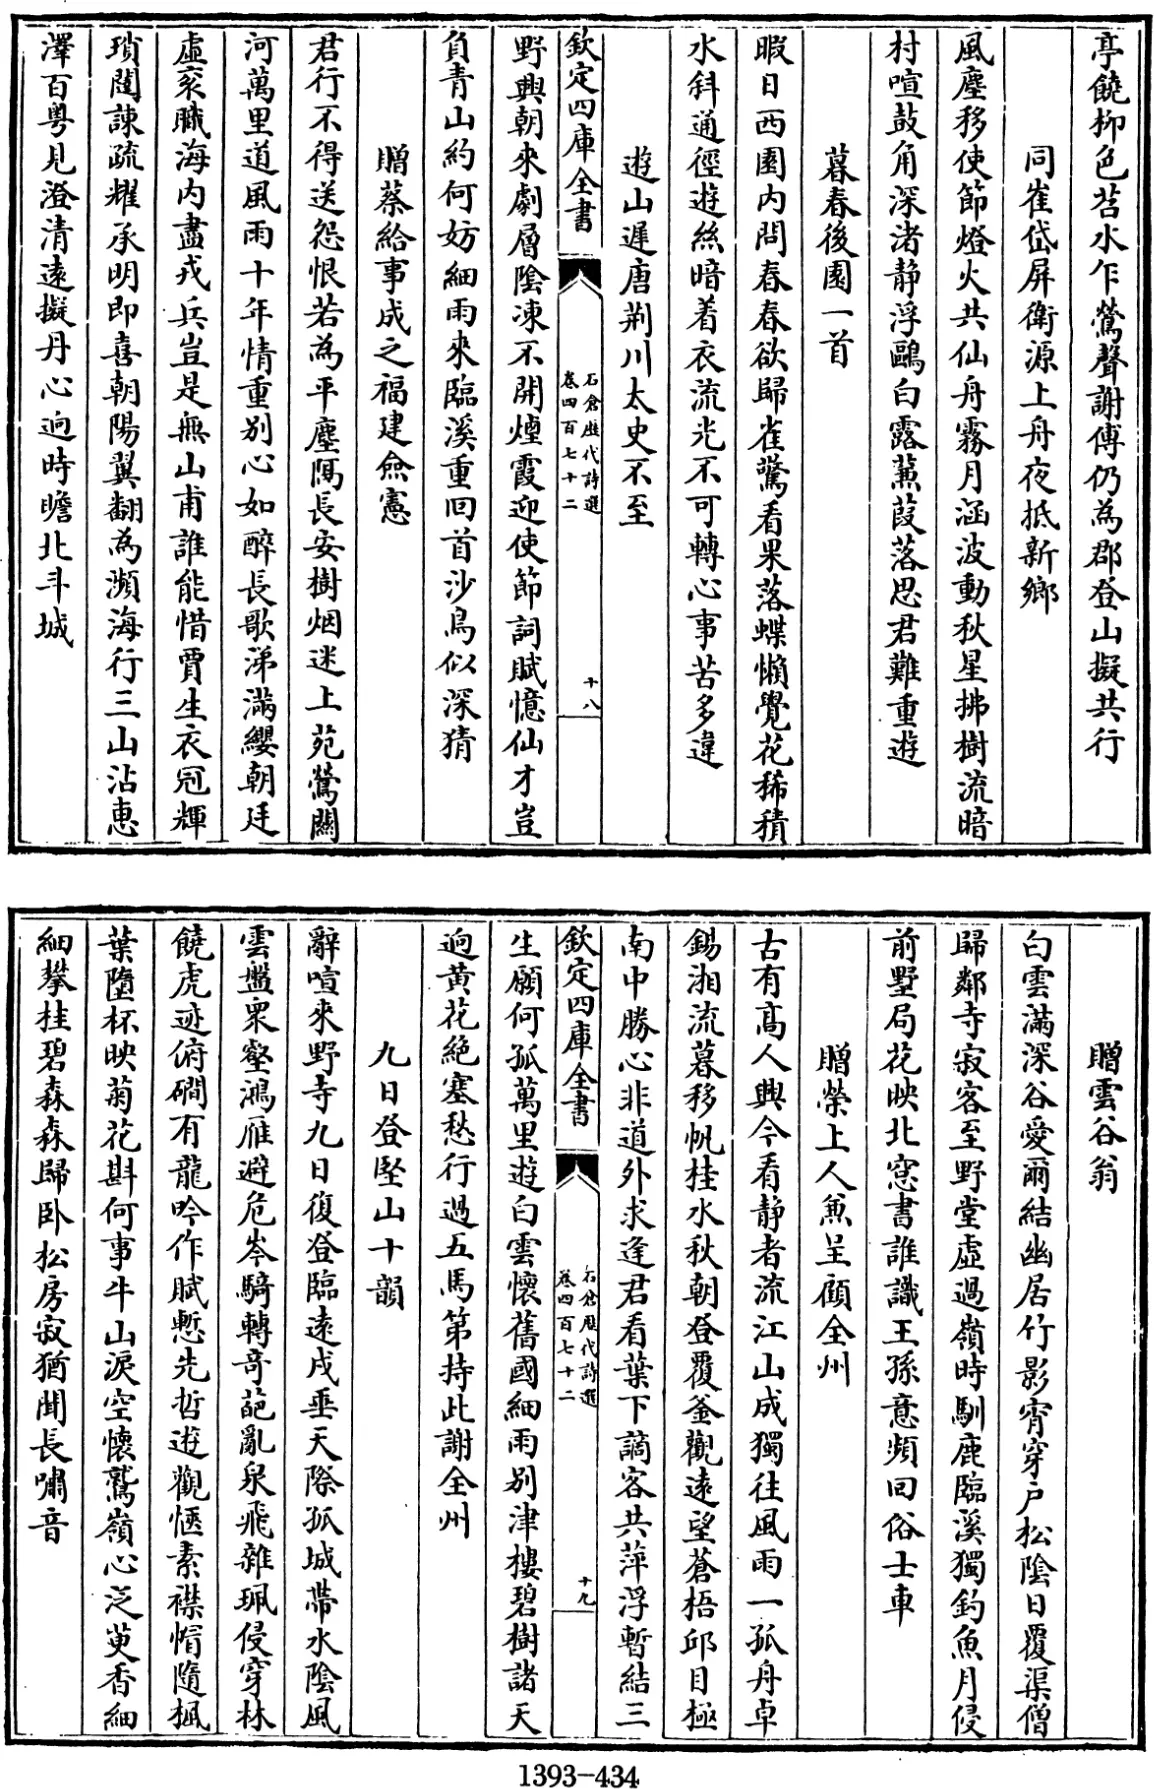 亭饒柳色苕水乍鶯聲謝傅仍為郡登山擬共行
同崔岱屏衛源上舟夜抵新鄉
風塵移使節燈火共仙舟霧月涵波動秋星拂樹流暗
村喧鼓角深渚静浮鷗白露蒹葭落思君難重遊
暮春後園一首
暇日西園内問春春欲歸雀驚看果落蝶懶覺花稀積
水斜通徑遊絲暗着衣流光不可轉心事苦多違
遊山遲唐荆川太史不至
欽定四庫全書
石倉歴代詩選
卷四百七十二
十八
野興朝來劇層陰凍不開煙霞迎使節詞賦憶仙才豈
負青山約何妨細雨來臨溪重回首沙鳥似深猜
贈蔡給事成之福建僉憲
君行不得送怨恨若為平塵隔長安樹烟迷上苑鶯關
河萬里道風雨十年情重别心如醉長歌涕滿纓朝廷
虛衮職海内盡戎兵豈是無山甫誰能惜賈生衣冠輝
瑣闥諫疏耀承明即喜朝陽翼翻為瀕海行三山沾惠
澤百粤見澄清遠擬丹心逈時瞻北斗城
贈雲谷翁
白雲滿深谷愛爾結幽居竹影宵穿户松陰日覆渠僧
歸鄰寺寂客至野堂虛過嶺時馴鹿臨溪獨釣魚月侵
前墅局花映北窓書誰識王孫意頻回俗士車
贈榮上人兼呈顧全州
古有高人興今看静者流江山成獨往風雨一孤舟卓
錫湘流暮移帆桂水秋朝登覆釜觀遠望蒼梧邱目極
南中勝心非道外求逢君看葉下謫客共萍浮暫結三
欽定四庫全書
石倉歴代詩選
卷四百七十二
十九
生願何孤萬里遊白雲懷舊國細雨别津樓碧樹諸天
逈黄花絶塞愁行過五馬第持此謝全州
九日登堅山十韻
辭喧來野寺九日復登臨遠戍垂天際孤城帶水陰風
雲盤衆壑鴻雁避危岑騎轉竒葩亂泉飛雜珮侵穿林
饒虎迹俯磵有龍吟作賦慙先哲遊觀愜素襟帽隨楓
葉墮杯映菊花斟何事牛山淚空懷鷲嶺心泛萸香細
細攀桂碧森森歸卧松房寂猶聞長嘯音
1393-434